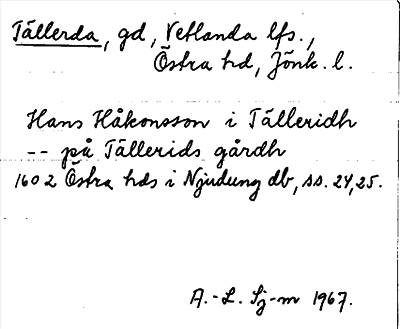 Tällerda, gd, Vetlanda lfs.,
Östra hd, Jönk. l.
Hans Håkonsson i Tälleridh
-- på Tällerids gårdh
1602 Östra hds i Njudung db, ss. 24, 25.
A.-L. Sj-m 1967.